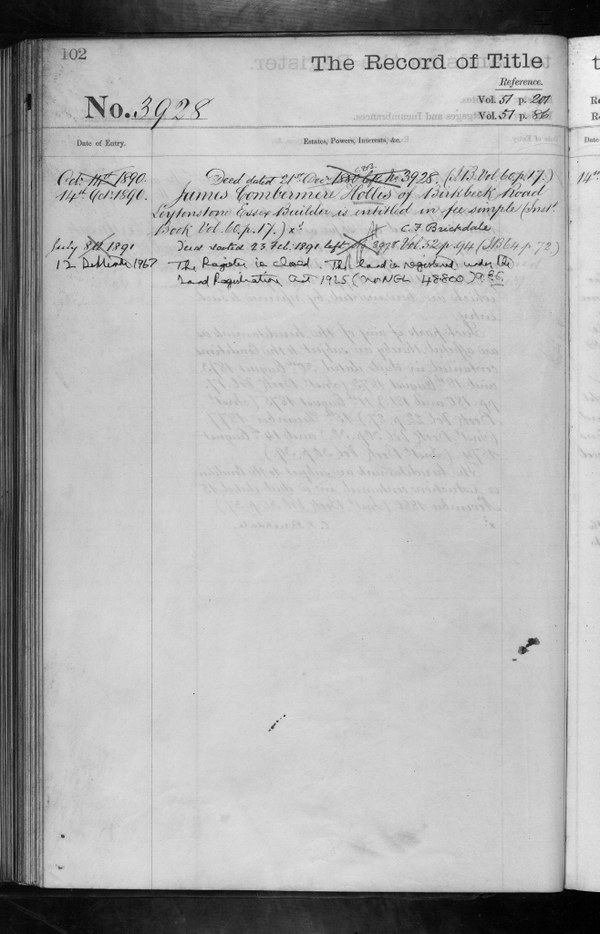 102
The Record of Title
Reference.
No. 3928
Vol. 51 p. 201
Vol. 51 p. 86
Date of Entry.
Estates, Powers, Interests, &c.
Oct. 14th 1890. Deed dated 21st 3928. (I.B. Vol. 60. p. 17.)
14th Oct. 1890. James Combermere Hollis of Birkbeck Road
Leytonstone Essex Builder, is entitled in fee simple (Inst.
Book Vol. 60. p. 17.) C. F. Brickdale
July 8th 1891 Deed dated 23 Feb. 1891 left Vol. 52 p. 94 (I.B. 64 p. 72)
12 1967 The Register is closed. The land is registered under the
Land Registration Act 1925 (No NGL 48800)